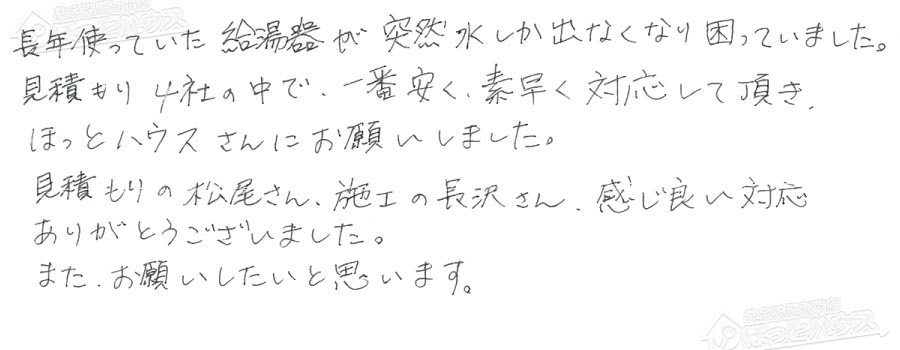 長年使っていた給湯器が突然水しか出なくなり困っていました。
見積もり4社の中で、一番安く、素早く対応して頂き、
ほっとハウスさんにお願いしました。
見積もりの松尾さん、施工の長沢さん、感じ良い対応
ありがとうございました。
また、お願いしたいと思います。
ほっとハウス